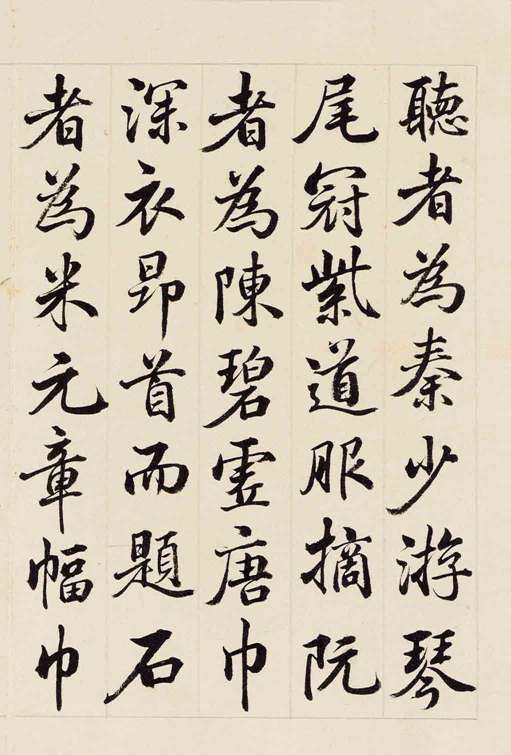 聽者為秦少游琴
尾冠紫道服摘阮
者為陳碧虛唐巾
深衣昂首而題石
者為米元章幅巾